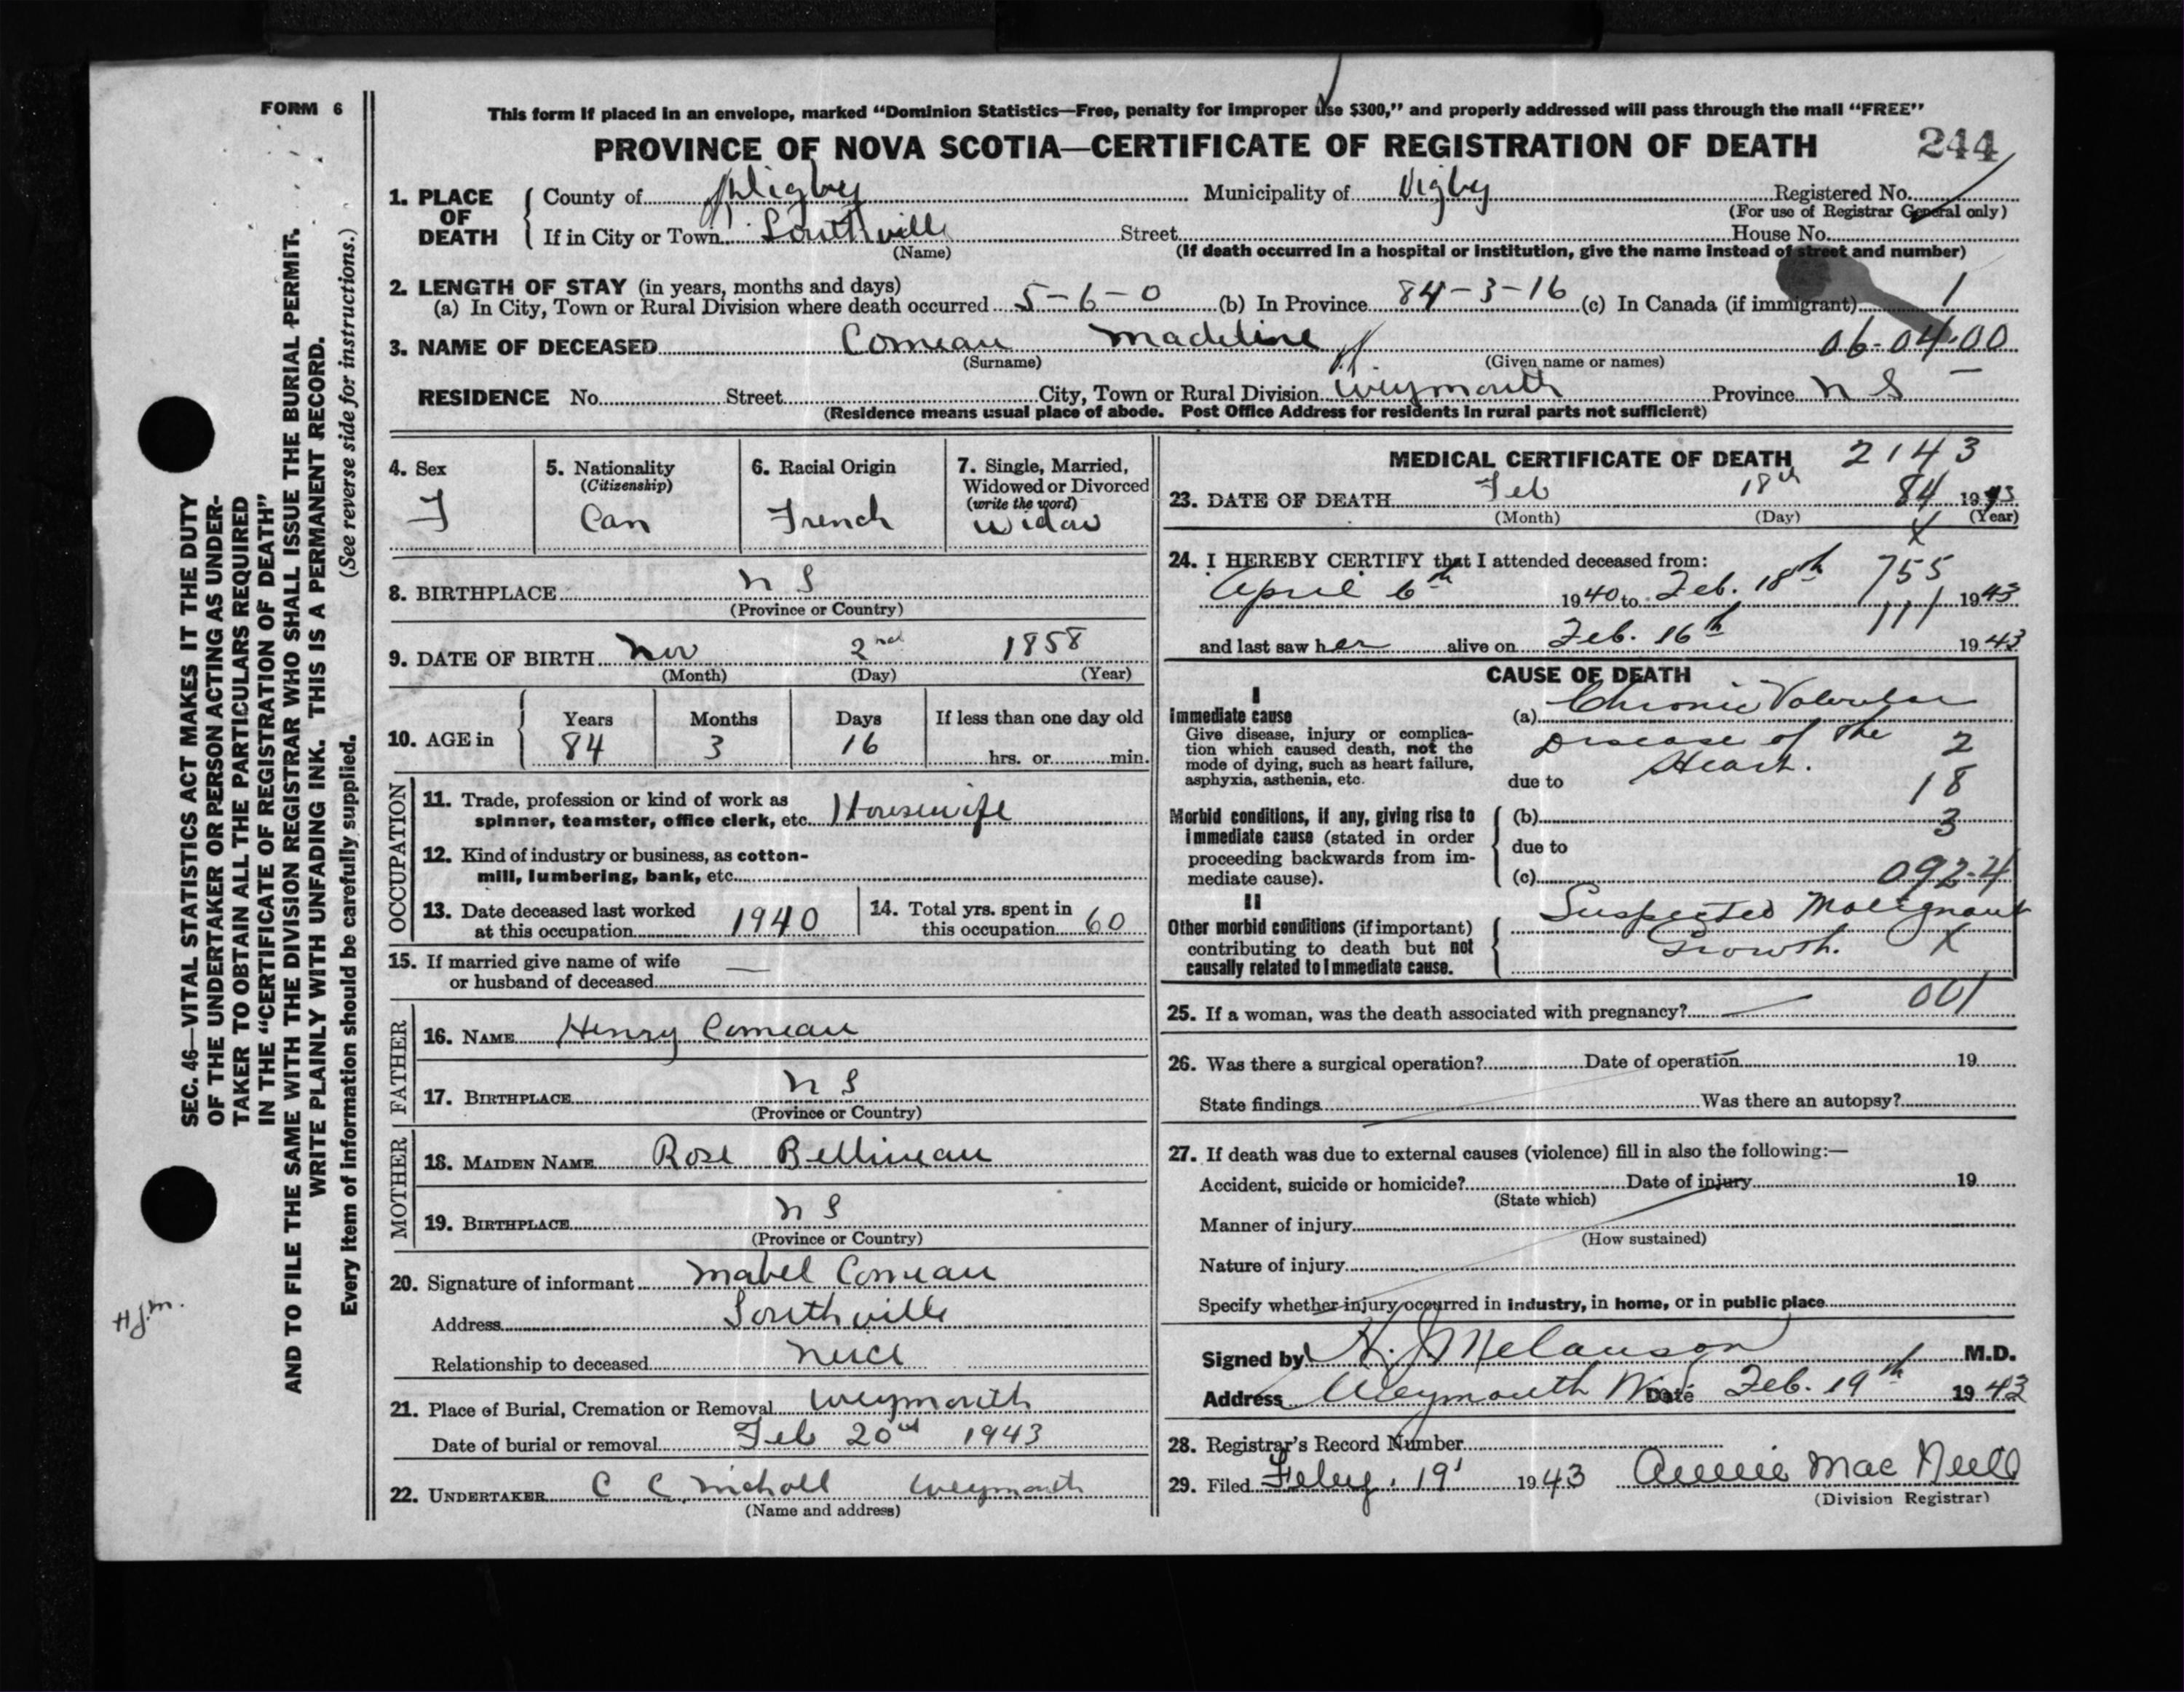 FORM 6
This form if placed in an envelope, marked "Dominion Statistics—Free, penalty for improper use $300," and properly addressed will pass through the mail "FREE"
PROVINCE OF NOVA SCOTIA—CERTIFICATE OF REGISTRATION OF DEATH 244
1. PLACE OF DEATH County of Digby Municipality of Digby Registered No.
(For use of Registrar General only)
If in City or Town Southville Street House No.
(Name) (If death occurred in a hospital or institution, give the name instead of street and number)
2. LENGTH OF STAY (in years, months and days)
(a) In City, Town or Rural Division where death occurred 5-6-0 (b) In Province 84-3-16 (c) In Canada (if immigrant) 1
3. NAME OF DECEASED Comeau Madeline 06-04-00
(Surname) (Given name or names)
RESIDENCE No. Street City, Town or Rural Division Weymouth Province N S
(Residence means usual place of abode. Post Office Address for residents in rural parts not sufficient)
4. Sex F
5. Nationality (Citizenship) Can
6. Racial Origin French
7. Single, Married, Widowed or Divorced (write the word) Widow
8. BIRTHPLACE N S
(Province or Country)
9. DATE OF BIRTH Nov 2nd 1858
(Month) (Day) (Year)
10. AGE in Years 84 Months 3 Days 16 If less than one day old hrs. or min.
OCCUPATION
11. Trade, profession or kind of work as
spinner, teamster, office clerk, etc. Housewife
12. Kind of industry or business, as cotton-
mill, lumbering, bank, etc.
13. Date deceased last worked
at this occupation 1940
14. Total yrs. spent in
this occupation 60
15. If married give name of wife
or husband of deceased —
FATHER
16. NAME Henry Comeau
17. BIRTHPLACE N S
(Province or Country)
MOTHER
18. MAIDEN NAME Rose Bellineau
19. BIRTHPLACE N S
(Province or Country)
20. Signature of informant Mabel Comeau
Address Southville
Relationship to deceased Neice
21. Place of Burial, Cremation or Removal Weymouth
Date of burial or removal Feb 20 1943
22. UNDERTAKER C C Nicholl Weymouth
(Name and address)
MEDICAL CERTIFICATE OF DEATH 2143
23. DATE OF DEATH Feb 18th 84 1943
(Month) (Day) (Year)
X
24. I HEREBY CERTIFY that I attended deceased from:
755
April 6th 1940 to Feb. 18th 1943
111
and last saw her alive on Feb. 16th 1943
CAUSE OF DEATH
I
Immediate cause
Give disease, injury or complica-
tion which caused death, not the
mode of dying, such as heart failure,
asphyxia, asthenia, etc.
(a) Chronic Valvular
Disease of the 2
Heart.
due to 18
Morbid conditions, if any, giving rise to
immediate cause (stated in order
proceeding backwards from im-
mediate cause).
(b) 3
due to
(c) 092-4
II
Other morbid conditions (if important)
contributing to death but not
causally related to immediate cause.
Suspected Malignant
Growth. X
001
25. If a woman, was the death associated with pregnancy? —
26. Was there a surgical operation? Date of operation 19
State findings Was there an autopsy?
27. If death was due to external causes (violence) fill in also the following:—
Accident, suicide or homicide? Date of injury 19
(State which)
Manner of injury
(How sustained)
Nature of injury
Specify whether injury occurred in industry, in home, or in public place
Signed by H. J. Melanson M.D.
Address Weymouth N.S. Date Feb. 19th 1943
28. Registrar's Record Number
29. Filed Feby. 19 1943 Annie Mac Neill
(Division Registrar)
SEC. 46—VITAL STATISTICS ACT MAKES IT THE DUTY
OF THE UNDERTAKER OR PERSON ACTING AS UNDER-
TAKER TO OBTAIN ALL THE PARTICULARS REQUIRED
IN THE "CERTIFICATE OF REGISTRATION OF DEATH"
AND TO FILE THE SAME WITH THE DIVISION REGISTRAR WHO SHALL ISSUE THE BURIAL PERMIT.
WRITE PLAINLY WITH UNFADING INK. THIS IS A PERMANENT RECORD.
Every item of information should be carefully supplied. (See reverse side for instructions.)
H.J.M.